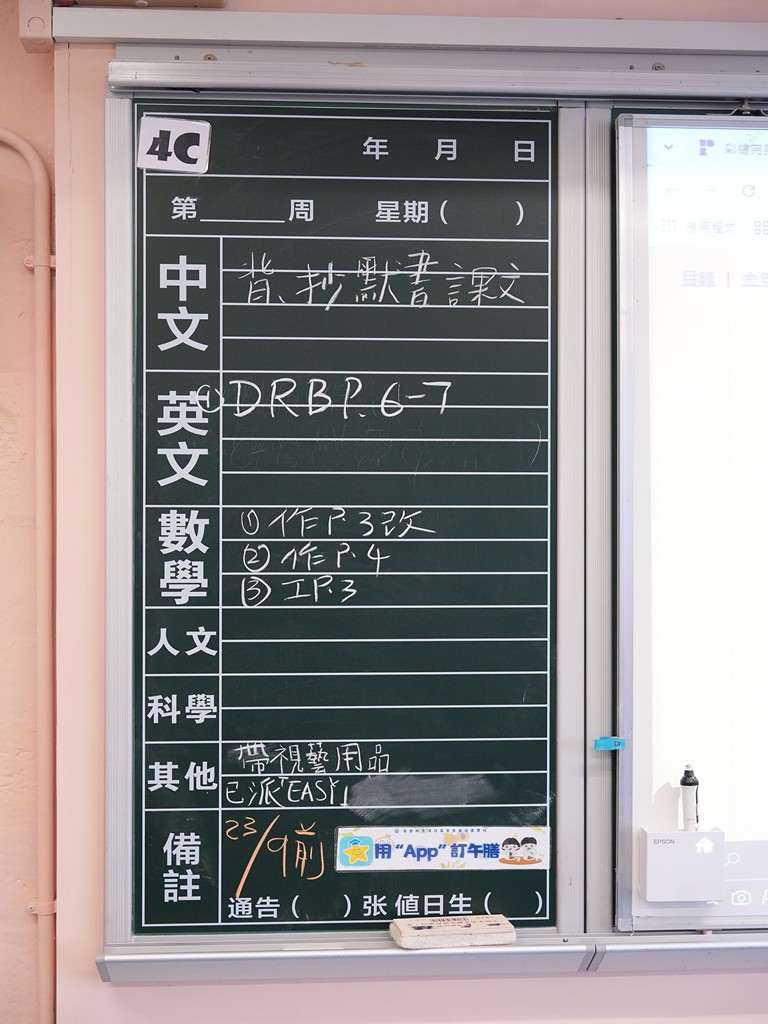 4C
年 月 日
第______周 星期( )
中文
背、抄默書課文
英文
①DRB P.6-7
數學
① 作P.3改
② 作P.4
③ 工P.3
人文
科學
其他
帶視藝用品
已派「EASY」
備註
23/9前
用“App”訂午膳
通告( )张 值日生( )
EPSON
目錄 |